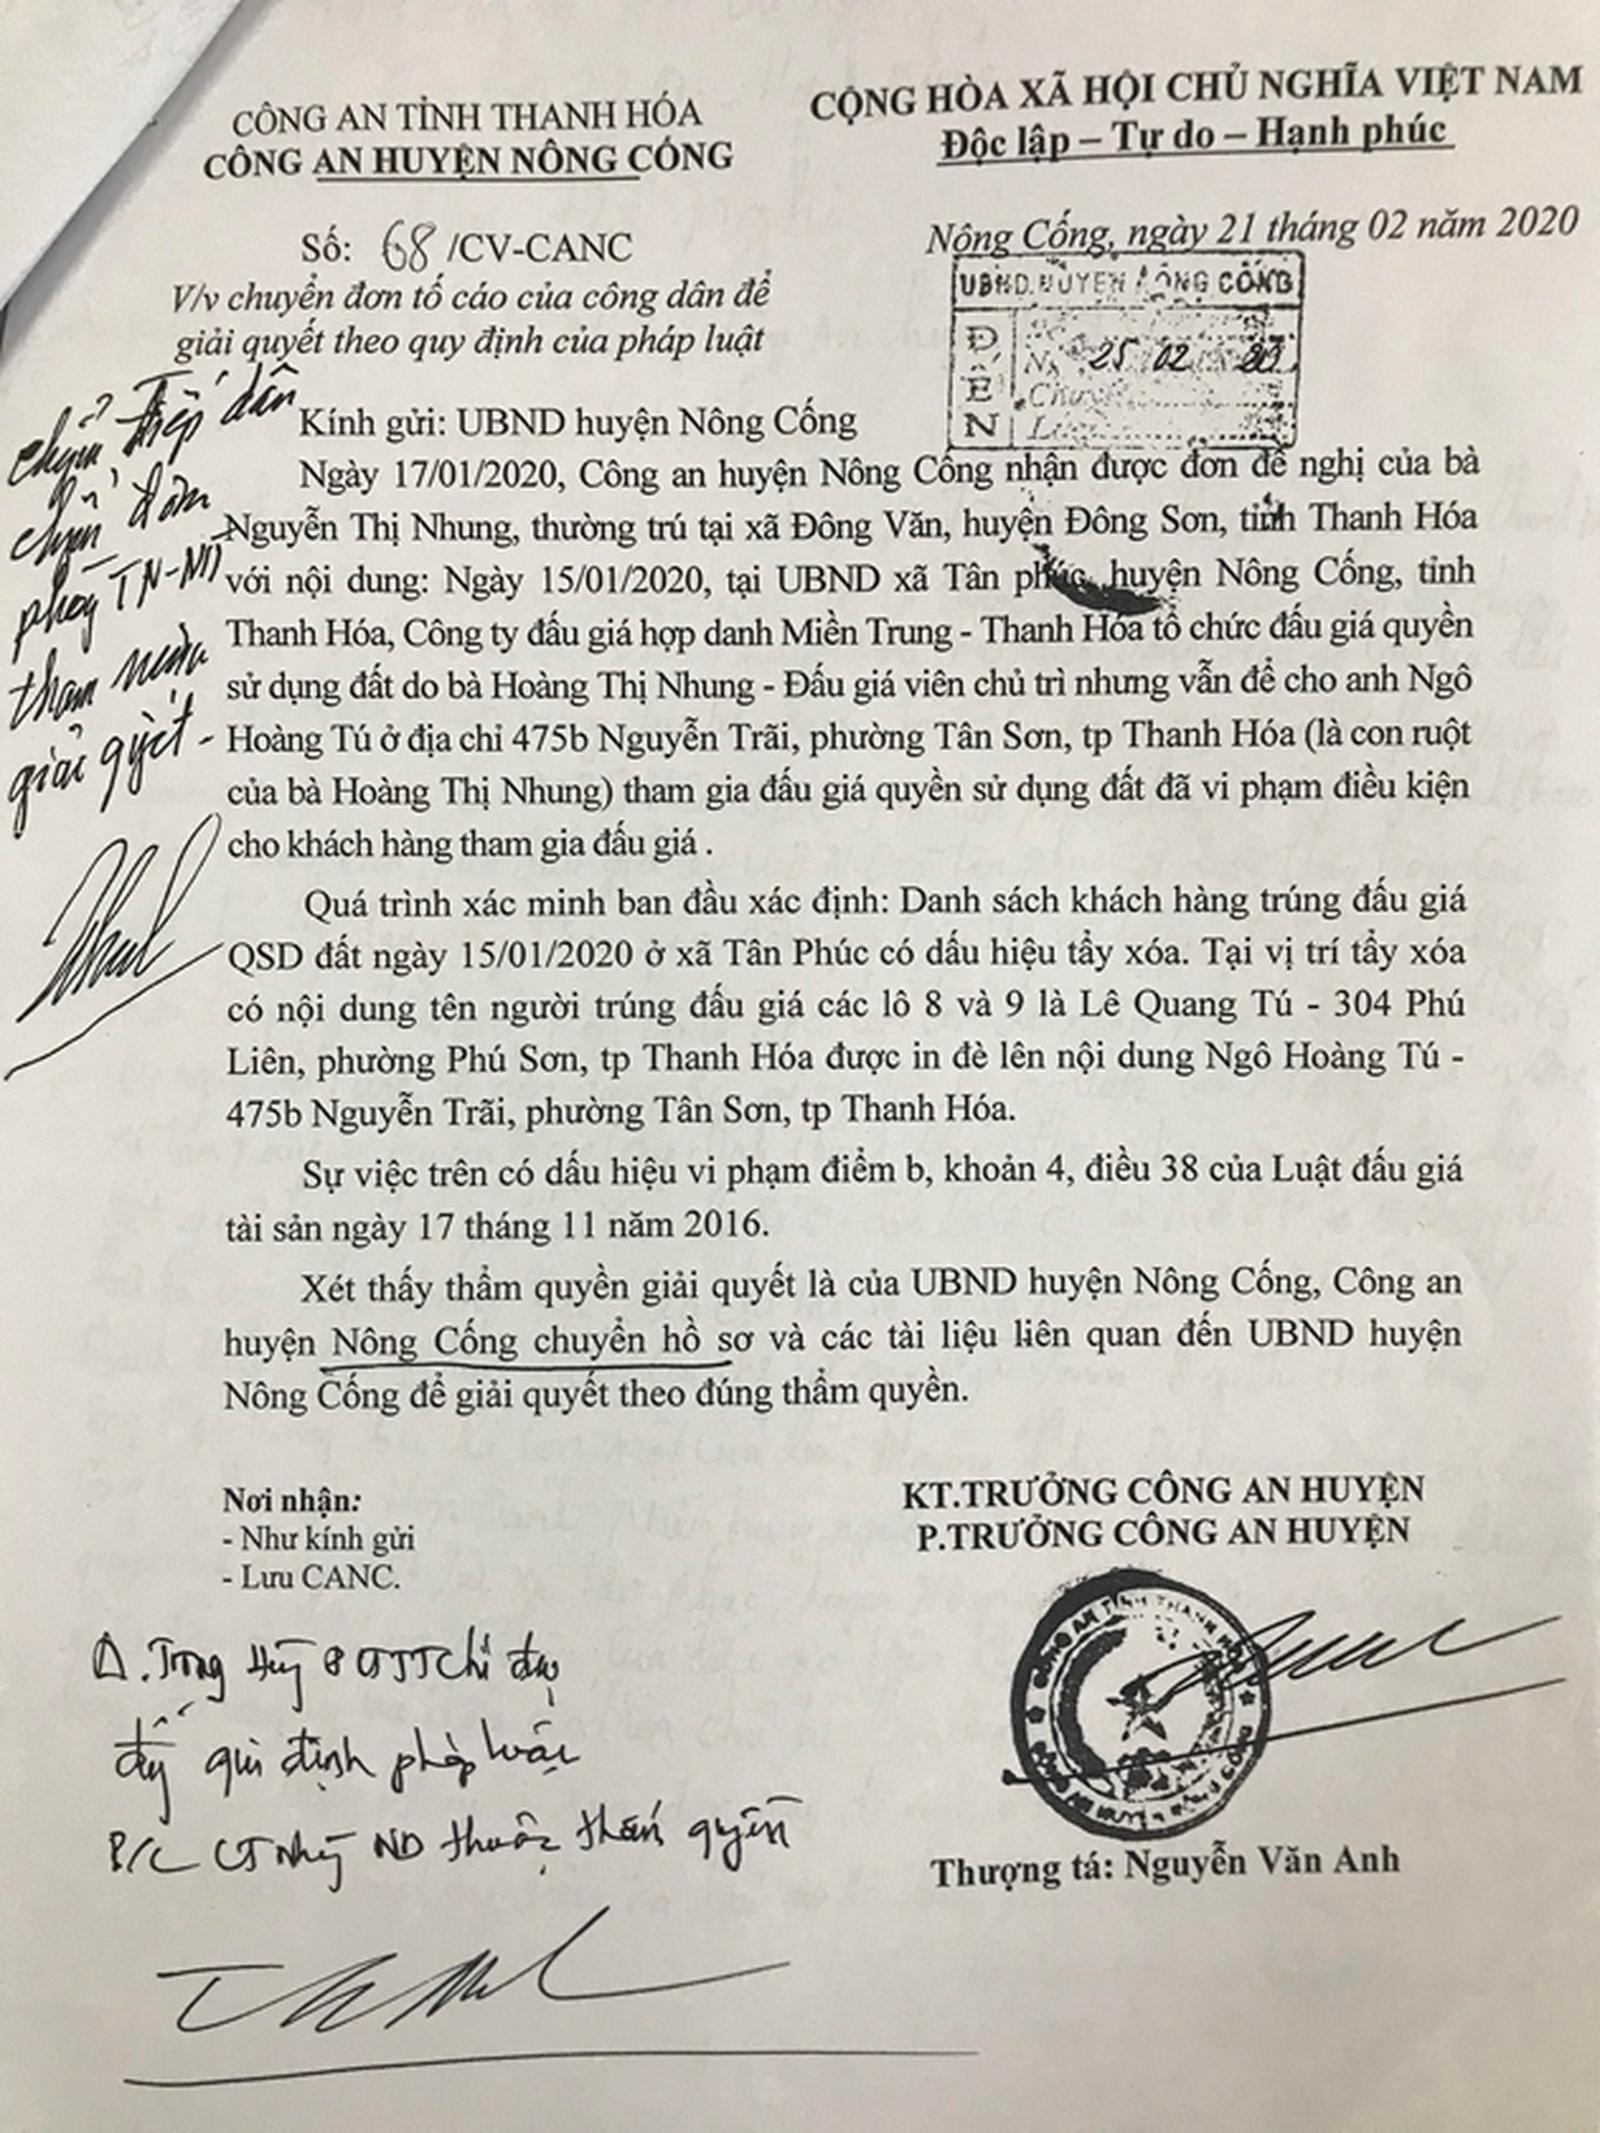 CÔNG AN TỈNH THANH HÓA
CÔNG AN HUYỆN NÔNG CỐNG
CỘNG HÒA XÃ HỘI CHỦ NGHĨA VIỆT NAM
Độc lập – Tự do – Hạnh phúc
Số: 68 /CV-CANC
V/v chuyển đơn tố cáo của công dân để
giải quyết theo quy định của pháp luật
Nông Cống, ngày 21 tháng 02 năm 2020
UBND.HUYỆN NÔNG CỐNG
ĐẾN
25 02
Kính gửi: UBND huyện Nông Cống
Ngày 17/01/2020, Công an huyện Nông Cống nhận được đơn đề nghị của bà
Nguyễn Thị Nhung, thường trú tại xã Đông Văn, huyện Đông Sơn, tỉnh Thanh Hóa
với nội dung: Ngày 15/01/2020, tại UBND xã Tân phúc, huyện Nông Cống, tỉnh
Thanh Hóa, Công ty đấu giá hợp danh Miền Trung - Thanh Hóa tổ chức đấu giá quyền
sử dụng đất do bà Hoàng Thị Nhung - Đấu giá viên chủ trì nhưng vẫn để cho anh Ngô
Hoàng Tú ở địa chỉ 475b Nguyễn Trãi, phường Tân Sơn, tp Thanh Hóa (là con ruột
của bà Hoàng Thị Nhung) tham gia đấu giá quyền sử dụng đất đã vi phạm điều kiện
cho khách hàng tham gia đấu giá .
Quá trình xác minh ban đầu xác định: Danh sách khách hàng trúng đấu giá
QSD đất ngày 15/01/2020 ở xã Tân Phúc có dấu hiệu tẩy xóa. Tại vị trí tẩy xóa
có nội dung tên người trúng đấu giá các lô 8 và 9 là Lê Quang Tú - 304 Phú
Liên, phường Phú Sơn, tp Thanh Hóa được in đè lên nội dung Ngô Hoàng Tú -
475b Nguyễn Trãi, phường Tân Sơn, tp Thanh Hóa.
Sự việc trên có dấu hiệu vi phạm điểm b, khoản 4, điều 38 của Luật đấu giá
tài sản ngày 17 tháng 11 năm 2016.
Xét thấy thẩm quyền giải quyết là của UBND huyện Nông Cống, Công an
huyện Nông Cống chuyển hồ sơ và các tài liệu liên quan đến UBND huyện
Nông Cống để giải quyết theo đúng thẩm quyền.
chuyển Tiếp dân
chuyển đơn
phòng TN-MT
tham mưu
giải quyết -
Nơi nhận:
- Như kính gửi
- Lưu CANC.
KT.TRƯỞNG CÔNG AN HUYỆN
P.TRƯỞNG CÔNG AN HUYỆN
CÔNG AN TỈNH THANH HÓA
CÔNG AN HUYỆN NÔNG CỐNG
Thượng tá: Nguyễn Văn Anh
chỉ đạo
qui định pháp luật
ND thuộc thẩm quyền